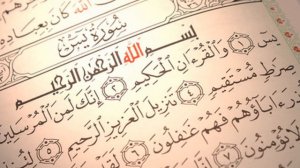 ٱللَّهَ كَانَ بِعِبَادِهِ
سُورَةُ يسٓ
بِسْمِ ٱللَّهِ ٱلرَّحْمَٰنِ ٱلرَّحِيمِ
يسٓ ١ وَٱلْقُرْءَانِ ٱلْحَكِيمِ ٢ إِنَّكَ لَمِنَ ٱلْمُرْسَلِينَ
صِرَٰطٍ مُّسْتَقِيمٍ ٤ تَنزِيلَ ٱلْعَزِيزِ ٱلرَّحِيمِ ٥
ءَابَآؤُهُمْ فَهُمْ غَٰفِلُونَ ٦
لَا يُؤْمِنُونَ ٧